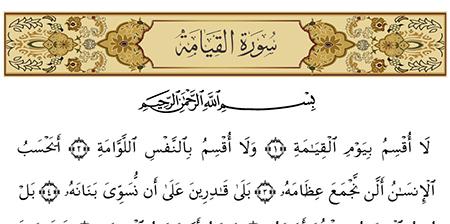 سُورَةُ القِيَامَةِ
بِسْمِ اللَّهِ الرَّحْمَٰنِ الرَّحِيمِ
لَا أُقْسِمُ بِيَوْمِ الْقِيَامَةِ ﴿١﴾ وَلَا أُقْسِمُ بِالنَّفْسِ اللَّوَّامَةِ ﴿٢﴾ أَيَحْسَبُ
الْإِنسَانُ أَلَّن نَّجْمَعَ عِظَامَهُ ﴿٣﴾ بَلَىٰ قَادِرِينَ عَلَىٰ أَن نُّسَوِّيَ بَنَانَهُ ﴿٤﴾ بَلْ